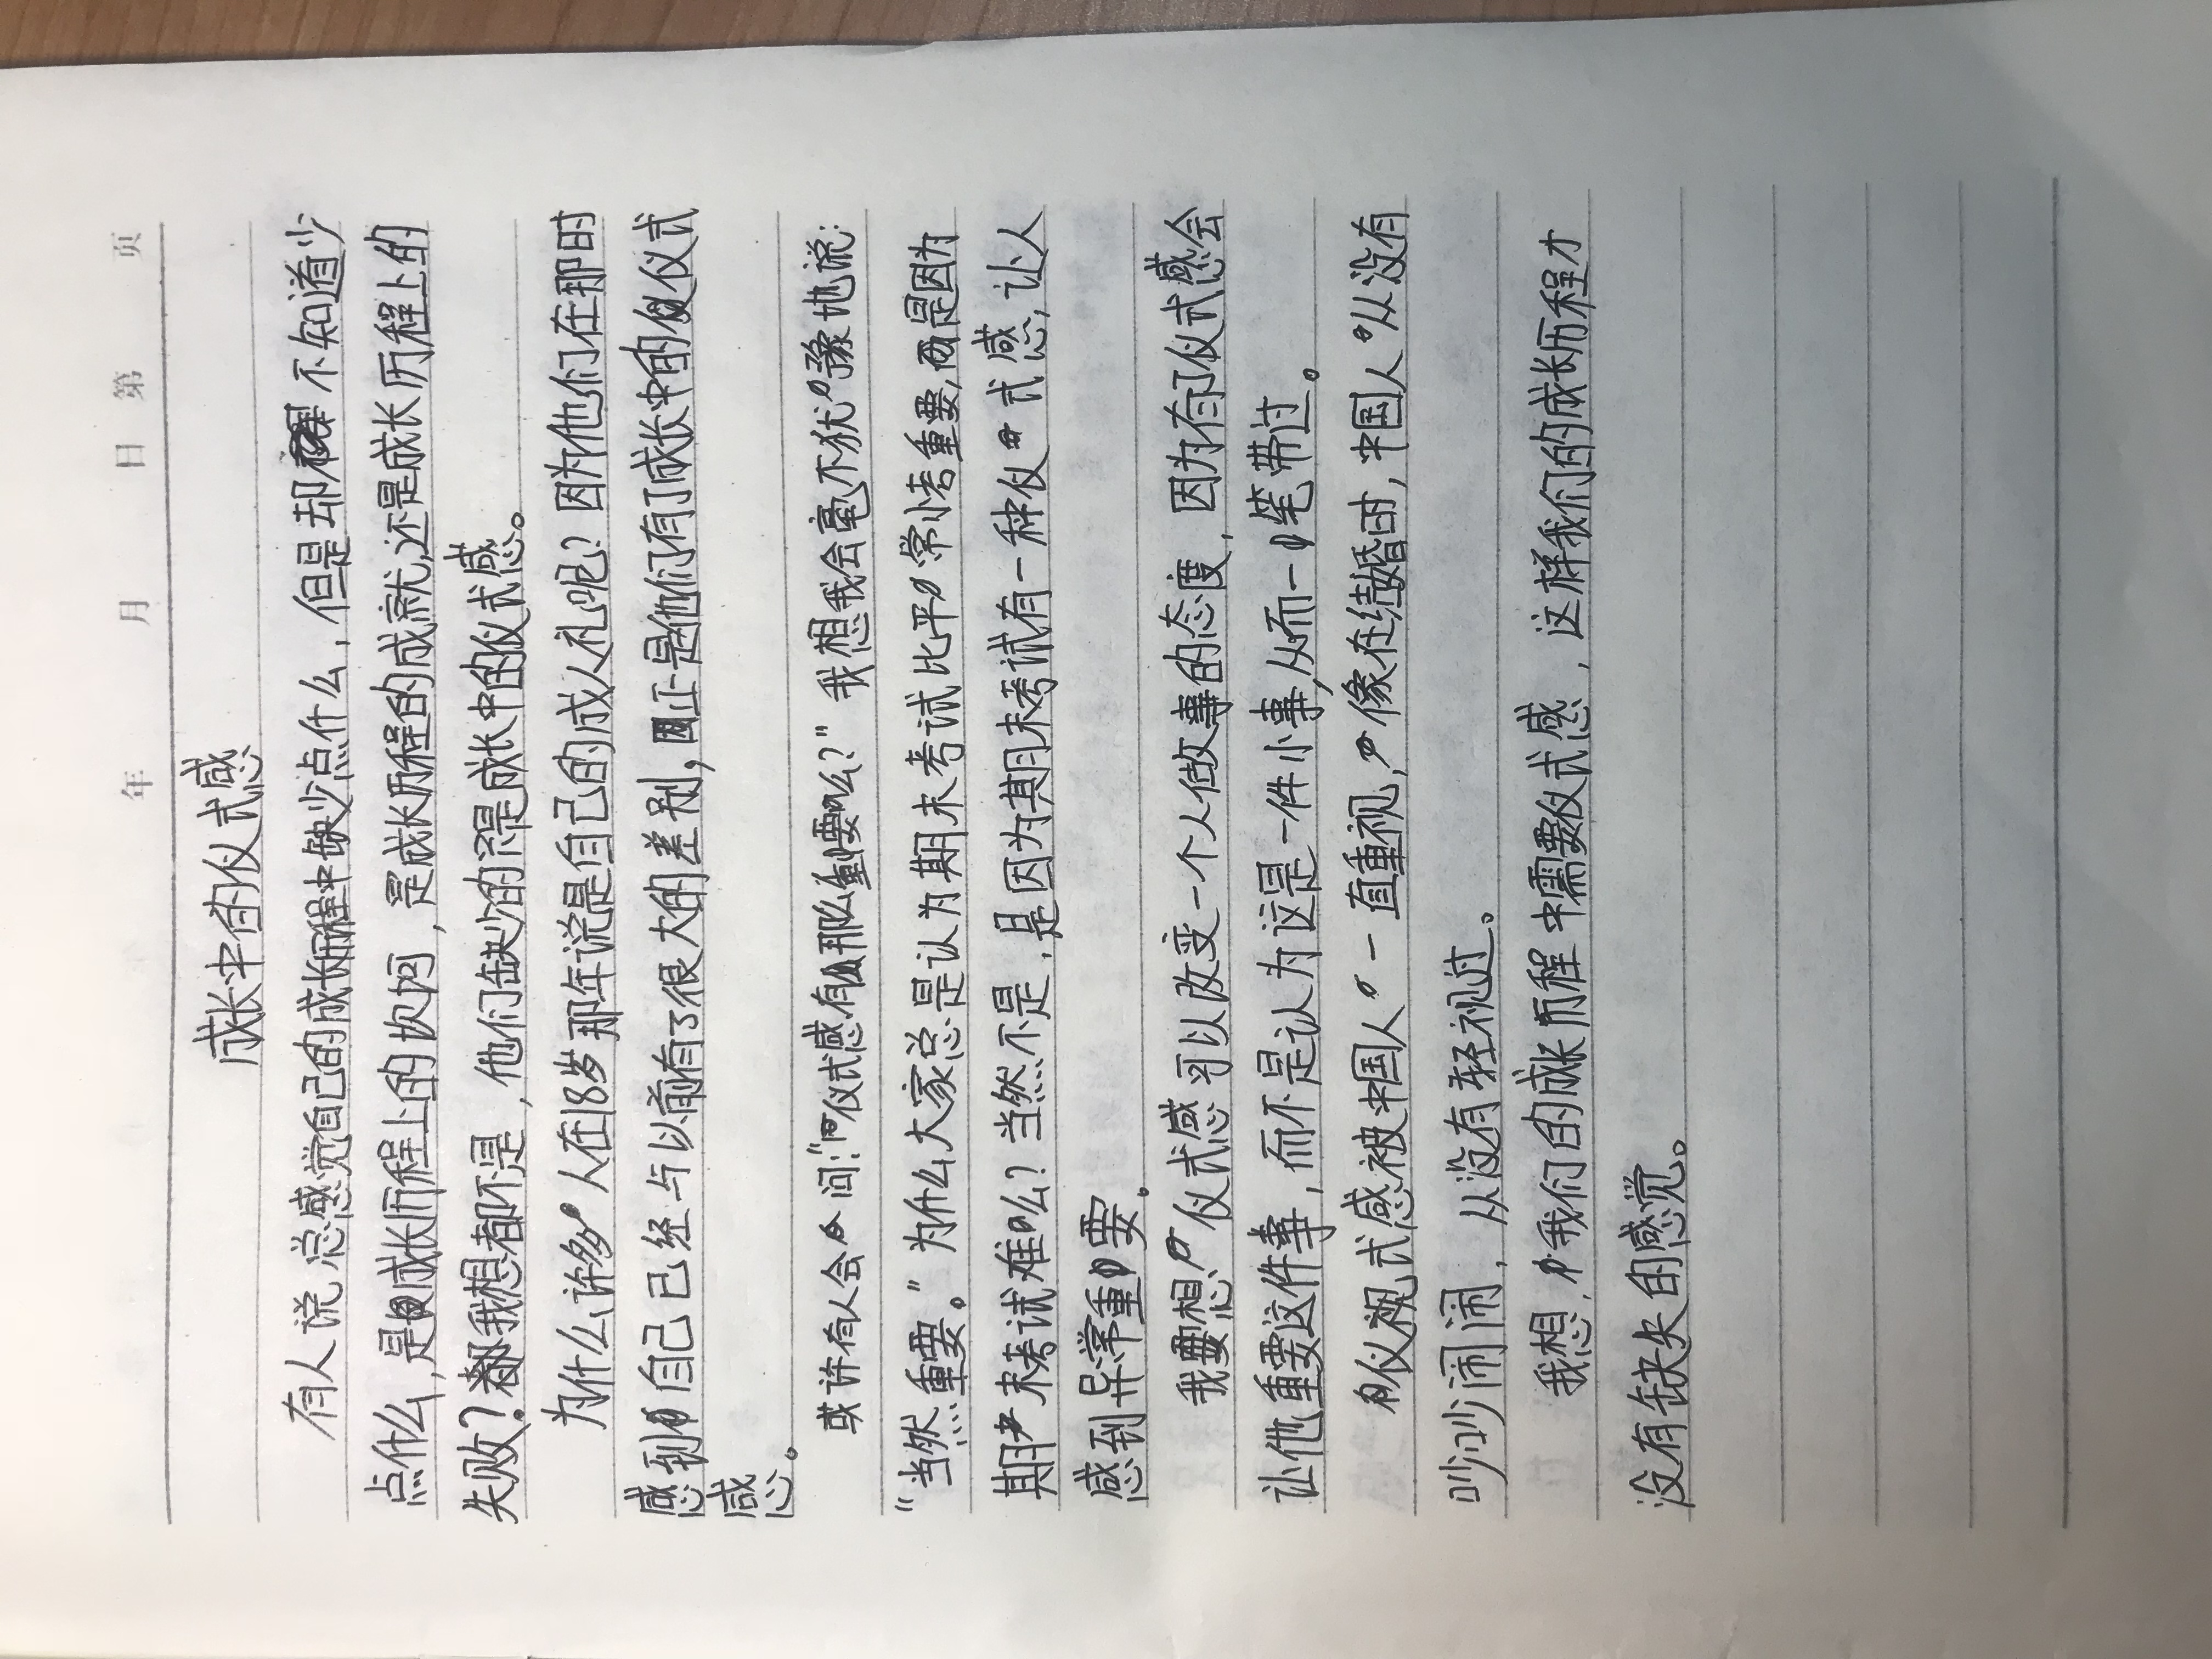 年 月 日 第 页
成长中的仪式感
有人说总感觉自己的成长历程中缺少点什么，但是却 不知道少
点什么，是成长历程上的坎坷，是成长历程的成就，还是成长历程上的
失败？我想都不是，他们缺少的是成长中的仪式感。
为什么许多人在18岁那年说是自己的成人礼呢？因为他们在那时
感到自己已经与以前有了很大的差别，正是他们有了成长中的仪式
感。
或许有人会问：“仪式感有那么重要么？”我想我会毫不犹豫地说：
“当然重要。”为什么大家总是认为期末考试比平常小考重要，是因为
期末考试难么？当然不是，是因为期末考试有一种仪式感，让人
感到异常重要。
我要想，仪式感可以改变一个人做事的态度，因为有了仪式感会
让他重要这件事，而不是认为这是一件小事，从而一笔带过。
仪式感被中国人一直重视，像在结婚时，中国人从没有
吵吵闹闹，从没有轻视过。
我想，我们的成长历程中需要仪式感，这样我们的成长历程才
没有缺失的感觉。